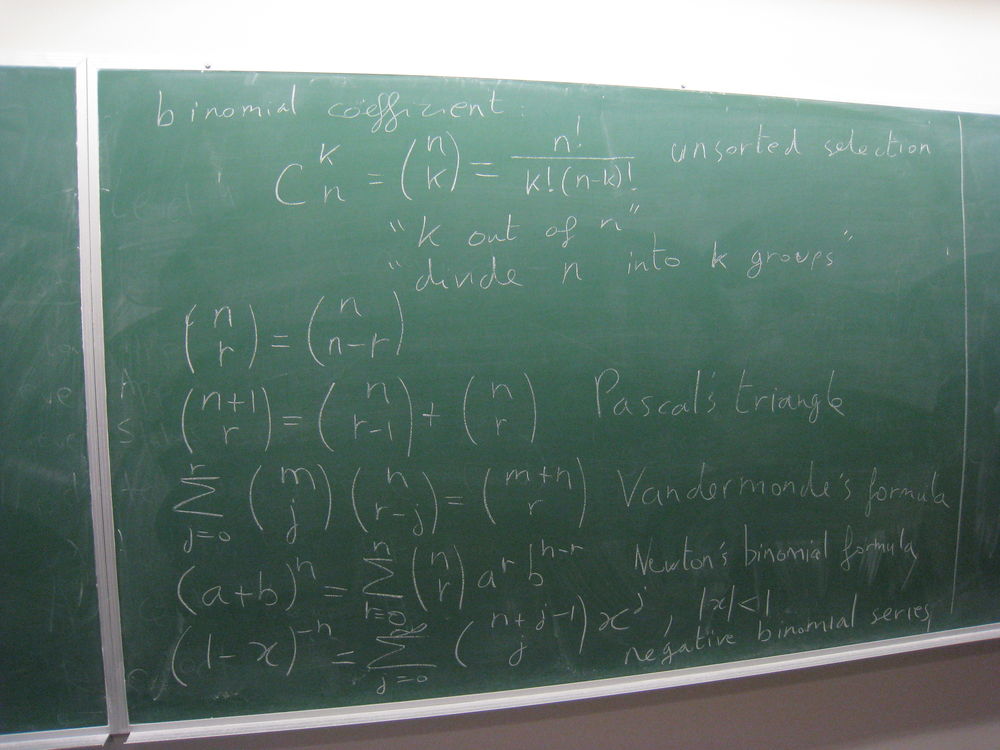 binomial coëffizient:
C_n^k = (n k) = n! / k!(n-k)! unsorted selection
"k out of n"
"divide n into k groups"
(n r) = (n n-r)
(n+1 r) = (n r-1) + (n r) Pascal's triangle
∑_{j=0}^{r} (m j) (n r-j) = (m+n r) Vandermonde's formula
(a+b)^n = ∑_{r=0}^{n} (n r) a^r b^{n-r} Newton's binomial formula
(1-x)^{-n} = ∑_{j=0}^{∞} (n+j-1 j) x^j, |x|<1
negative binomial series